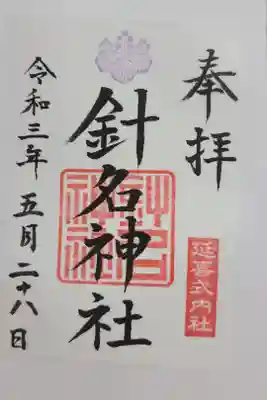 奉拝
延喜式内社
針名神社
令和三年五月二十八日